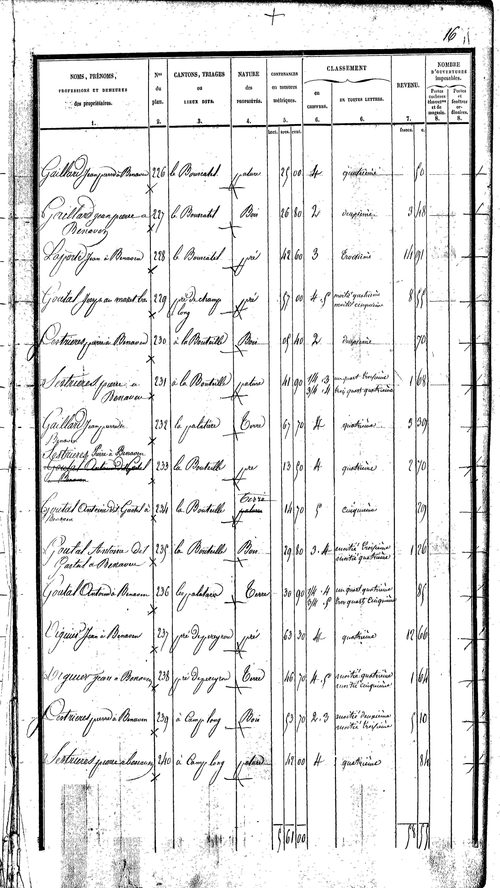 16
NOMS, PRÉNOMS, PROFESSIONS ET DEMEURES des propriétaires. Nos du plan. CANTONS, TRIAGES OU LIEUX DITS. NATURE des PROPRIÉTÉS. CONTENANCES en mesures métriques. CLASSEMENT en CHIFFRES. EN TOUTES LETTRES. REVENU. NOMBRE D'OUVERTURES imposables. Portes cochères charret.res et de magasin. Portes et fenêtres ordinaires.
1. 2. 3. 4. 5. 6. 6. 7. 8. 8.
hect. ares cent. francs. c.
Gaillard Jean pierre à Benaven 226 le Bourcatel pature 25 00 4 quatrième 50
Gaillard jean pierre a Benaven 227 le Bourcatel Bois 26 80 2 deuxième 3 48
Laporte Jean à Benaven 228 le Bourcatel pré 42 60 3 troisième 14 91
Goutal 229 pré de champ long pré 57 00 4.5 moitié quatrième moitié cinquième 8 55
Sestrieres pierre à Benaven 230 à la Bouteille Bois 05 40 2 deuxième 70
Sestrieres pierre a Benaven 231 à la Bouteille pature 41 90 1/4.3 3/4.4 un quart troisième trois quart quatrième 1 68
Gaillard Jean pierre à Benaven 232 la palature Terre 67 70 4 quatrième 3 39
Sestrieres Pierre à Benaven
233 la Bouteille pré 13 50 4 quatrième 2 70
Goutal Antoine dit Gastal à Benaven 234 la Bouteille Terre pature 14 70 5 cinquième 29
Goutal Antoine dit Gastal a Benaven 235 la Bouteille Bois 29 80 3.4 moitié troisième moitié quatrième 1 26
Goutal Antoine à Benaven 236 la palature Terre 30 90 1/4.4 3/4.5 un quart quatrième trois quarts cinquième 85
Viguier Jean à Benaven 237 pré de peyron pré 63 30 4 quatrième 12 66
Viguier jean a Benaven 238 pré de peyron Terre 46 70 4.5 moitié quatrième moitié cinquième 1 64
Sestrieres pierre à Benaven 239 à Camp long Bois 53 70 2.3 moitié deuxième moitié troisième 5 10
Sestrieres pierre a benaven 240 à Camp long pature 42 00 4 quatrième 84
5 61 00 58 55